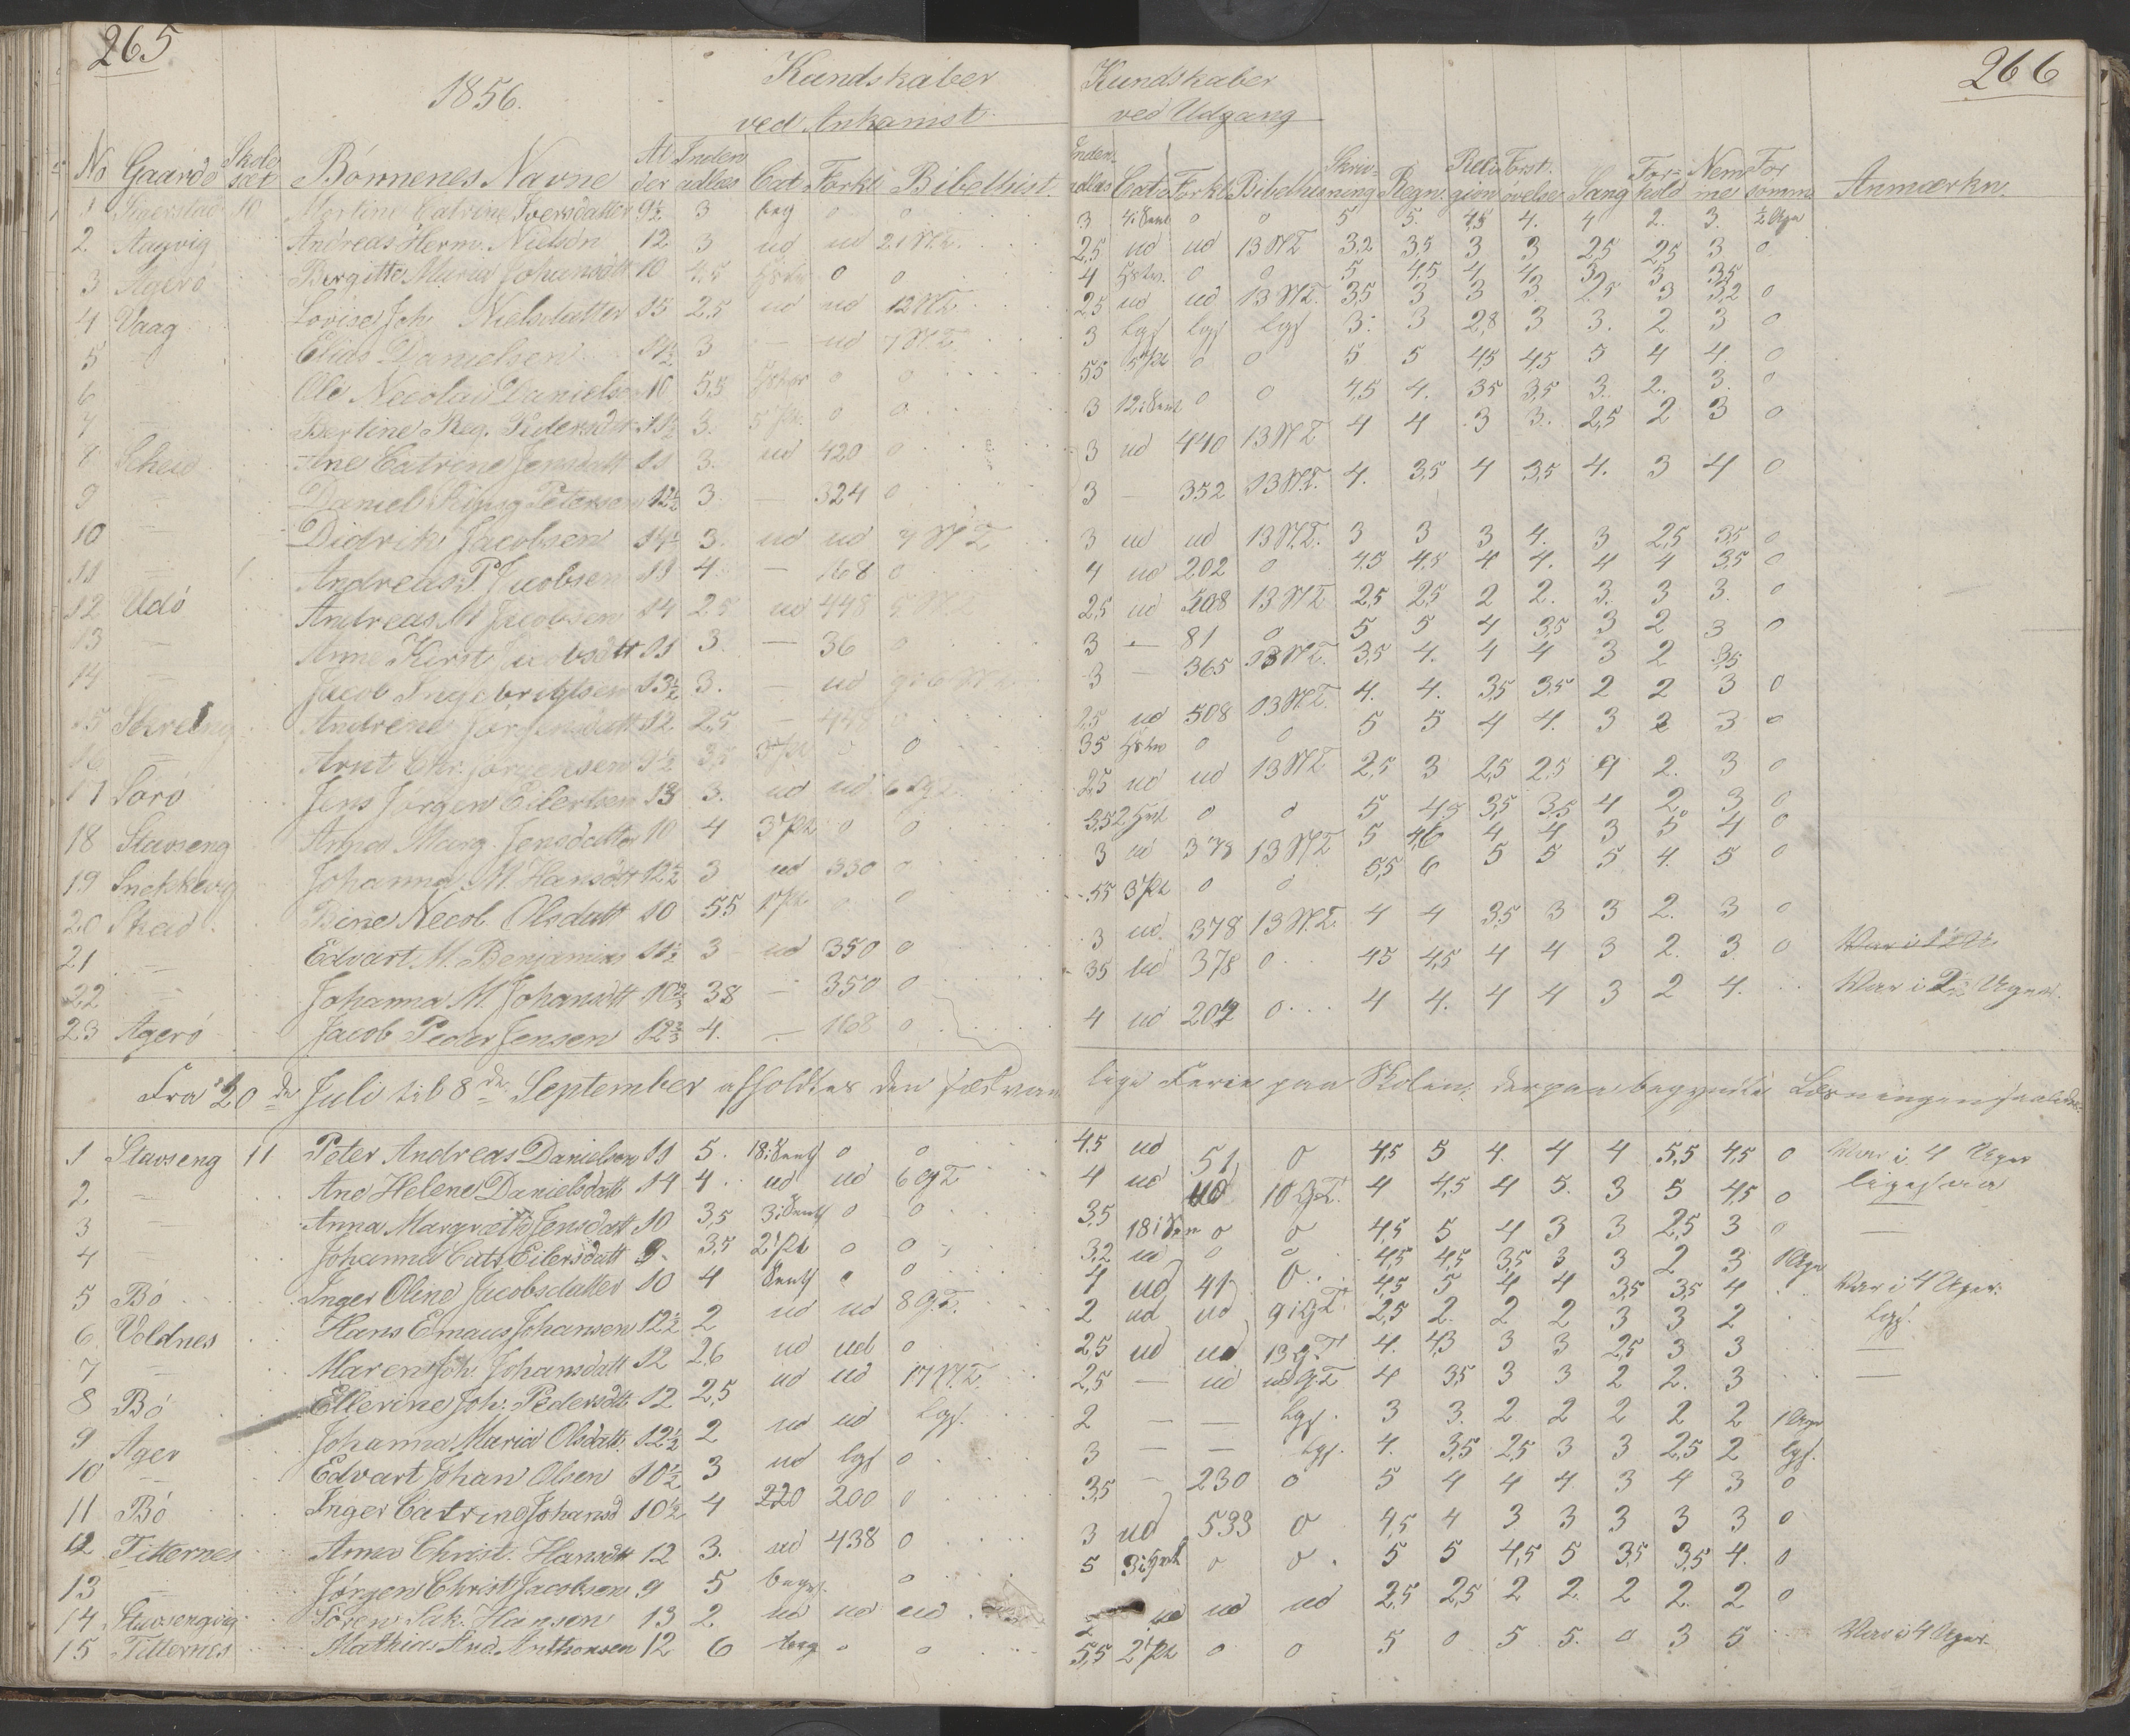 265
1856.
Kundskaber
ved Ankomst
No Gaarde Skole sæt Børnenes Navne Al der Inden adlæs Cat Forkl Bibelhist.
1 10 Martine Catrine Iversdatter 9½ 3 beg 0 0
2 Aagvig Andreas Herm. Nielsen 12 3 ud ud 21 N.T.
3 Agerø Birgitte Maria Johansdtt 10 4,5 0 0
4 Vaag Lovise Joh. Nielsdatter 15 2,5 ud ud 12 N.T.
5 — Elias Danielsen 11½ 3 — ud 7 N.T.
6 Ole Necolai Danielsen 10 5,5 0 0
7 — Bertine Reg. Pedersdtt 11½ 3. 5 Pt. 0 0
8 Skeid Ane Catrine Jensdatt 11 3. ud 420 0
9 — Daniel Petersen 12½ 3. — 324 0
10 — Didrik Jacobsen 14½ 3. ud ud 7 N.T.
11 — Andreas P. Jacobsen 13 4. — 168 0
12 Udø Andreas M Jacobsen 14 2,5 ud 448
13 — Anne Kirst. Jacobsdtt 11 3. — 36 0
14 — Jacob Ingebrigtsen 13½ 3. — ud
15 Andrene Jørgensdatt 12 2,5 — 448 0
16 — Arnt Chr. Jørgensen 9½ 3 Pt 0 0
17 Sørø Jens Jørgen Eilertsen 13 3. ud ud
18 Stavseng Anna Marg. Jensdatter 10 4 3 Pt 0 0
19 Snekkevig Johanna M. Hansdtt 12½ 3 ud 330 0
20 Skeid Dine Necol. Olsdatt 10 5,5 1 Pt. 0 0
21 — Edvart M. Benjamins 11½ 3 ud 350 0
22 — Johanna M. Johansdtt 10⅔ 38 — 350 0
23 Agerø Jacob Peder Jensen 12⅔ 4. — 168 0
Fra 20de Juli til 8de September afholdtes den sædvan
1 Stavseng 11 Peter Andreas Danielsen 11 5. 18 i Sent 0 0
2 — Ane Helene Danielsdatt 14 4 ud ud 6 G.T.
3 — Anna Margrethe Jensdatt 10 3,5 3 i Sent 0 0
4 — Johanna Cat. Eilersdatt 9 3,5 2 Pt 0 0
5 Bø Inger Oline Jacobsdatter 10 4 Sent 0 0
6 Voldnes Hans Emaus Johansen 12½ 2 ud ud 8 G.T.
7 — Maren Joh. Johansdatt 12 2,6 ud ud 0
8 Bø Ellerine Joh. Pedersdtt 12 2,5 ud ud 17 N.T.
9 Ager Johanna Maria Olsdatt 12½ 2 ud ud ligs.
10 — Edvart Johan Olsen 10½ 3 ud ligs 0
11 Bø Inger Catrine Johansd 10½ 4 220 200 0
12 Titternes Anna Christ. Hansdtt 12 3. ud 438 0
13 — Jørgen Christ Jacobsen 9 5 begs. 0
14 Stavsengvig Søren Sak. Hansen 13 2 ud ud ud
15 Titternes Mathias And. Anthonsen 12 6 beg 0 0
266
Kundskaber
ved Udgang
Inden adlæs Cat. Forkl. Bibelhis Skriv ning Regn. Reli gion Forst. øvelse Sang For hold Nem me For somm. Anmærkn.
3 4 i Sent 0 0 5 5. 4,5 4. 4 2. 3. ½ Uge
2,5 ud ud 13 N.T. 3,2 3,5 3 3 2,5 2,5 3 0
4 0 0 5 4,5 4 4 3 3 3,5
2,5 ud ud 13 N.T. 3,5 3 3 3. 2,5 3 3,2 0
3 ligs ligs ligs 3. 3 2,8 3 3. 2. 3 0
5,5 5 Pt 0 0 5 5 4,5 4,5 5 4 4. 0
3 12 i Sent 0 0 4,5 4. 3,5 3,5 3. 2. 3. 0
3 ud 440 13 N.T. 4 4 3 3. 2,5 2 3 0
3 — 352 13 N.T. 4. 3,5 4 3,5 4. 3 4 0
3 ud ud 13 N.T. 3 3 3 4. 3 2,5 3,5 0
4 ud 202 0 4,5 4,5 4 4. 4 4 3,5 0
2,5 ud 508 13 N.T. 2,5 2,5 2 2. 3. 3 3. 0
3 — 81 0 5 5 4 3,5 3 2 3 0
3 — 365 13 N.T. 3,5 4. 4 4 3 2 3,5
2,5 ud 508 13 N.T. 4. 4. 3,5 3,5 2 2 3 0
3,5 0 0 5 5 4 4. 3 2 3 0
2,5 ud ud 13 N.T. 2,5 3 2,5 2,5 4 2. 3 0
3,5 0 0 5 4,5 3,5 3,5 4 2. 3 0
3 ud 378 13 N.T. 5 4,6 4 4 3 5 4 0
5,5 3 Pt 0 0 5,5 6 5 5 5 4. 5 0
3 ud. 378 13 N.T. 4 4 3,5 3 3 2. 3 0
3,5 ud 378 0 4,5 4,5 4 4 3 2. 3. 0
4 ud 202 0 4 4. 4 4 3 2 4. Var i 2 Uger.
lige Ferie paa Skolen, derpaa begyndte Læsningen saaledes:
4,5 ud 51 0 4,5 5 4. 4 4 5,5 4,5 0 Var i 4 Uger
4 ud ud 10 G.T. 4 4,5 4 5. 3 5 4,5 0 ligesaa
3,5 18 i Sen 0 0 4,5 5 4 3 3 2,5 3 0 —
3,2 ud 0 0 4,5 4,5 3,5 3 3 2 3 1 Uge
4 ud 41 0 4,5 5 4 4 3,5 3,5 4 Var i 4 Uger.
2 ud ud 9 i G.T. 2,5 2. 2 2 3 3 2 ligs.
2,5 ud ud 13 G.T. 4. 4,3 3 3 2,5 3 3 —
2,5 — ud ud G.T. 4 3,5 3 3 2 2. 3 —
2 — — ligs. 3 3. 2 2 2 2 2 1 Uge
3 — — ligs. 4. 3,5 2,5 3 3 2,5 2 ligs.
3,5 — 230 0 5 4 4 4 3 4 3 0
3 ud 533 0 4,5 4 3 3 3 3 3 0
5 0 0 5 5 4,5 5 3,5 3,5 4. 0
2 ud ud ud 2,5 2,5 2 2. 2 2. 2 0
5,5 2 Pt 0 0 5 0 5 5. 0 3 5 Var i 4 Uger.